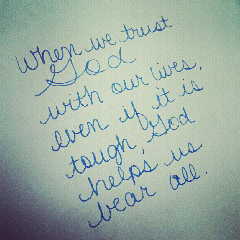 When we trust
God
with our lives,
even if it is
tough, God
helps us
bear all.